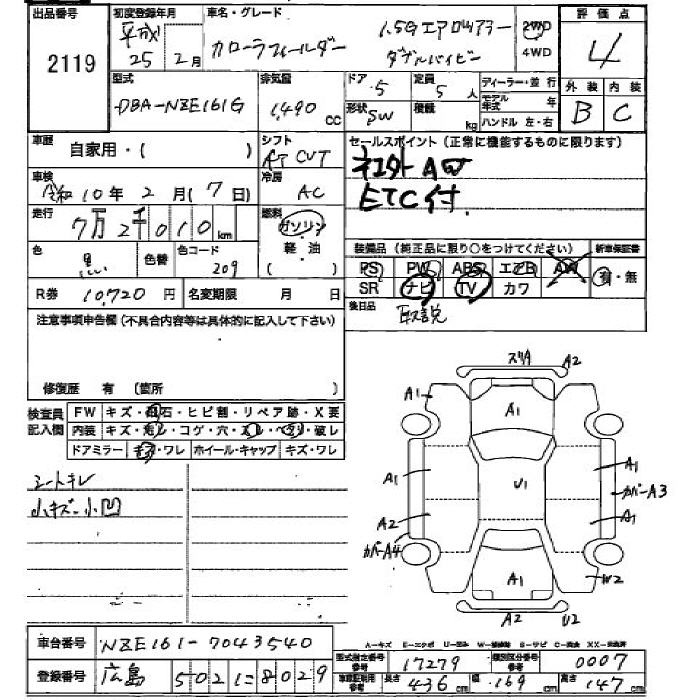 出品番号 2119
初度登録年月 平成 25 2月
車名・グレード カローラフィールダー 1.5Gエアロツアラー ダブルバイビー
2WD 4WD
評価点 4
外装 B 内装 C
型式 DBA-NZE161G
排気量 1,490 CC
ドア 5 定員 5 人
形状 SW 積載 kg
ディーラー・並行
モデル年式 年
ハンドル 左・右
車歴 自家用・( )
シフト AT CVT
車検 令和 10年 2月 ( 7日)
冷房 AC
走行 7万 2千 0 1 0 km
燃料 ガソリン 軽油 ( )
色 黒 色替 色コード 209
R券 10,720 円 名変期限 月 日
セールスポイント(正常に機能するものに限ります)
ETC付
装備品(純正品に限り○をつけてください) 新車保証書
PS PW ABS エアB AW 有・無
SR ナビ TV カワ
後日品 取説
注意事項申告欄(不具合内容等は具体的に記入して下さい)
修復歴 有 (箇所 )
検査員記入欄
FW キズ・飛石・ヒビ割・リペア跡・X要
内装 キズ・・コゲ・穴・・・破レ
ドアミラー キズ・ワレ ホイール・キャップ キズ・ワレ
シートキレ
小キズ 小凹
スリA A2
A1 A1
A1 U1 A1
カバーA3
A2 A1
カバーA4
A1 W2
A2 U2
A-キズ E-エクボ U-凹み W-補修跡 S-サビ C-腐食 XX-交換済
車台番号 NZE161-7043540
登録番号 広島 502 に 8029
型式指定番号 参考 17279 類別区分番号 参考 0007
車庫証明用 参考 長さ 436 cm 幅 169 cm 高さ 147 cm